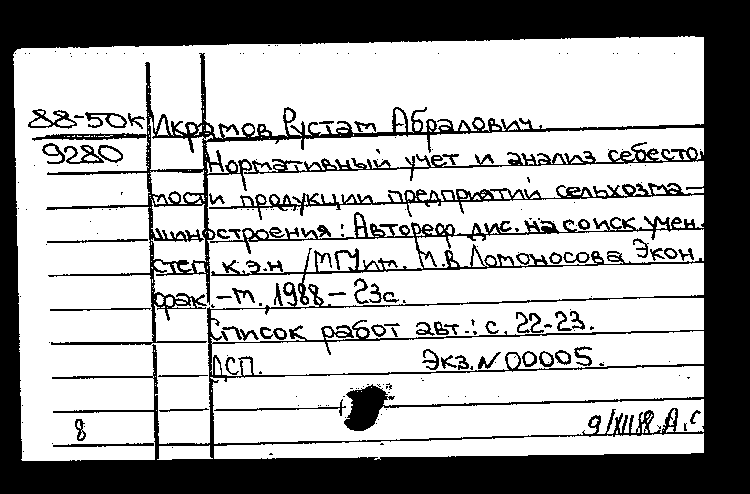 88-50к Икрамов, Рустам Абралович.
9280 Нормативный учет и анализ себестои
мости продукции предприятий сельхозма-
шиностроения: Автореф. дис. на соиск. учен.
степ. к.э.н /МГУ им. М.В. Ломоносова. Экон.
фак. - М., 1988. - 23с.
Список работ авт.: с. 22-23.
ДСП. Экз. N 00005.
8 9/XII 88 А.С